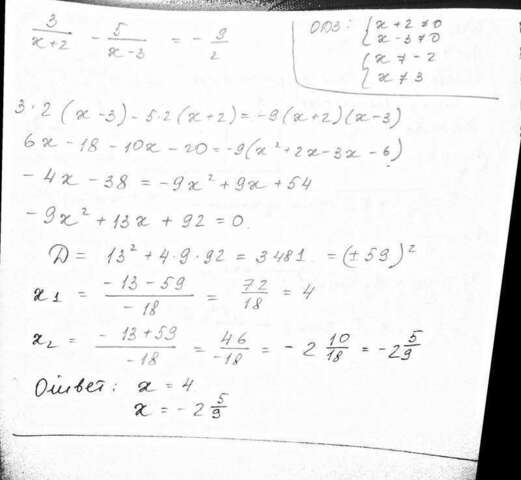 3/(x+2) - 5/(x-3) = - 9/2
ОДЗ: { x + 2 ≠ 0
x - 3 ≠ 0
{ x ≠ - 2
x ≠ 3
3·2(x-3) - 5·2(x+2) = -9(x+2)(x-3)
6x - 18 - 10x - 20 = -9(x² + 2x - 3x - 6)
- 4x - 38 = - 9x² + 9x + 54
- 9x² + 13x + 92 = 0.
D = 13² + 4·9·92 = 3481 = (± 59)²
x₁ = (- 13 - 59)/(- 18) = 72/18 = 4
x₂ = (- 13 + 59)/(-18) = 46/(-18) = - 2 10/18 = - 2 5/9
Ответ: x = 4
x = - 2 5/9